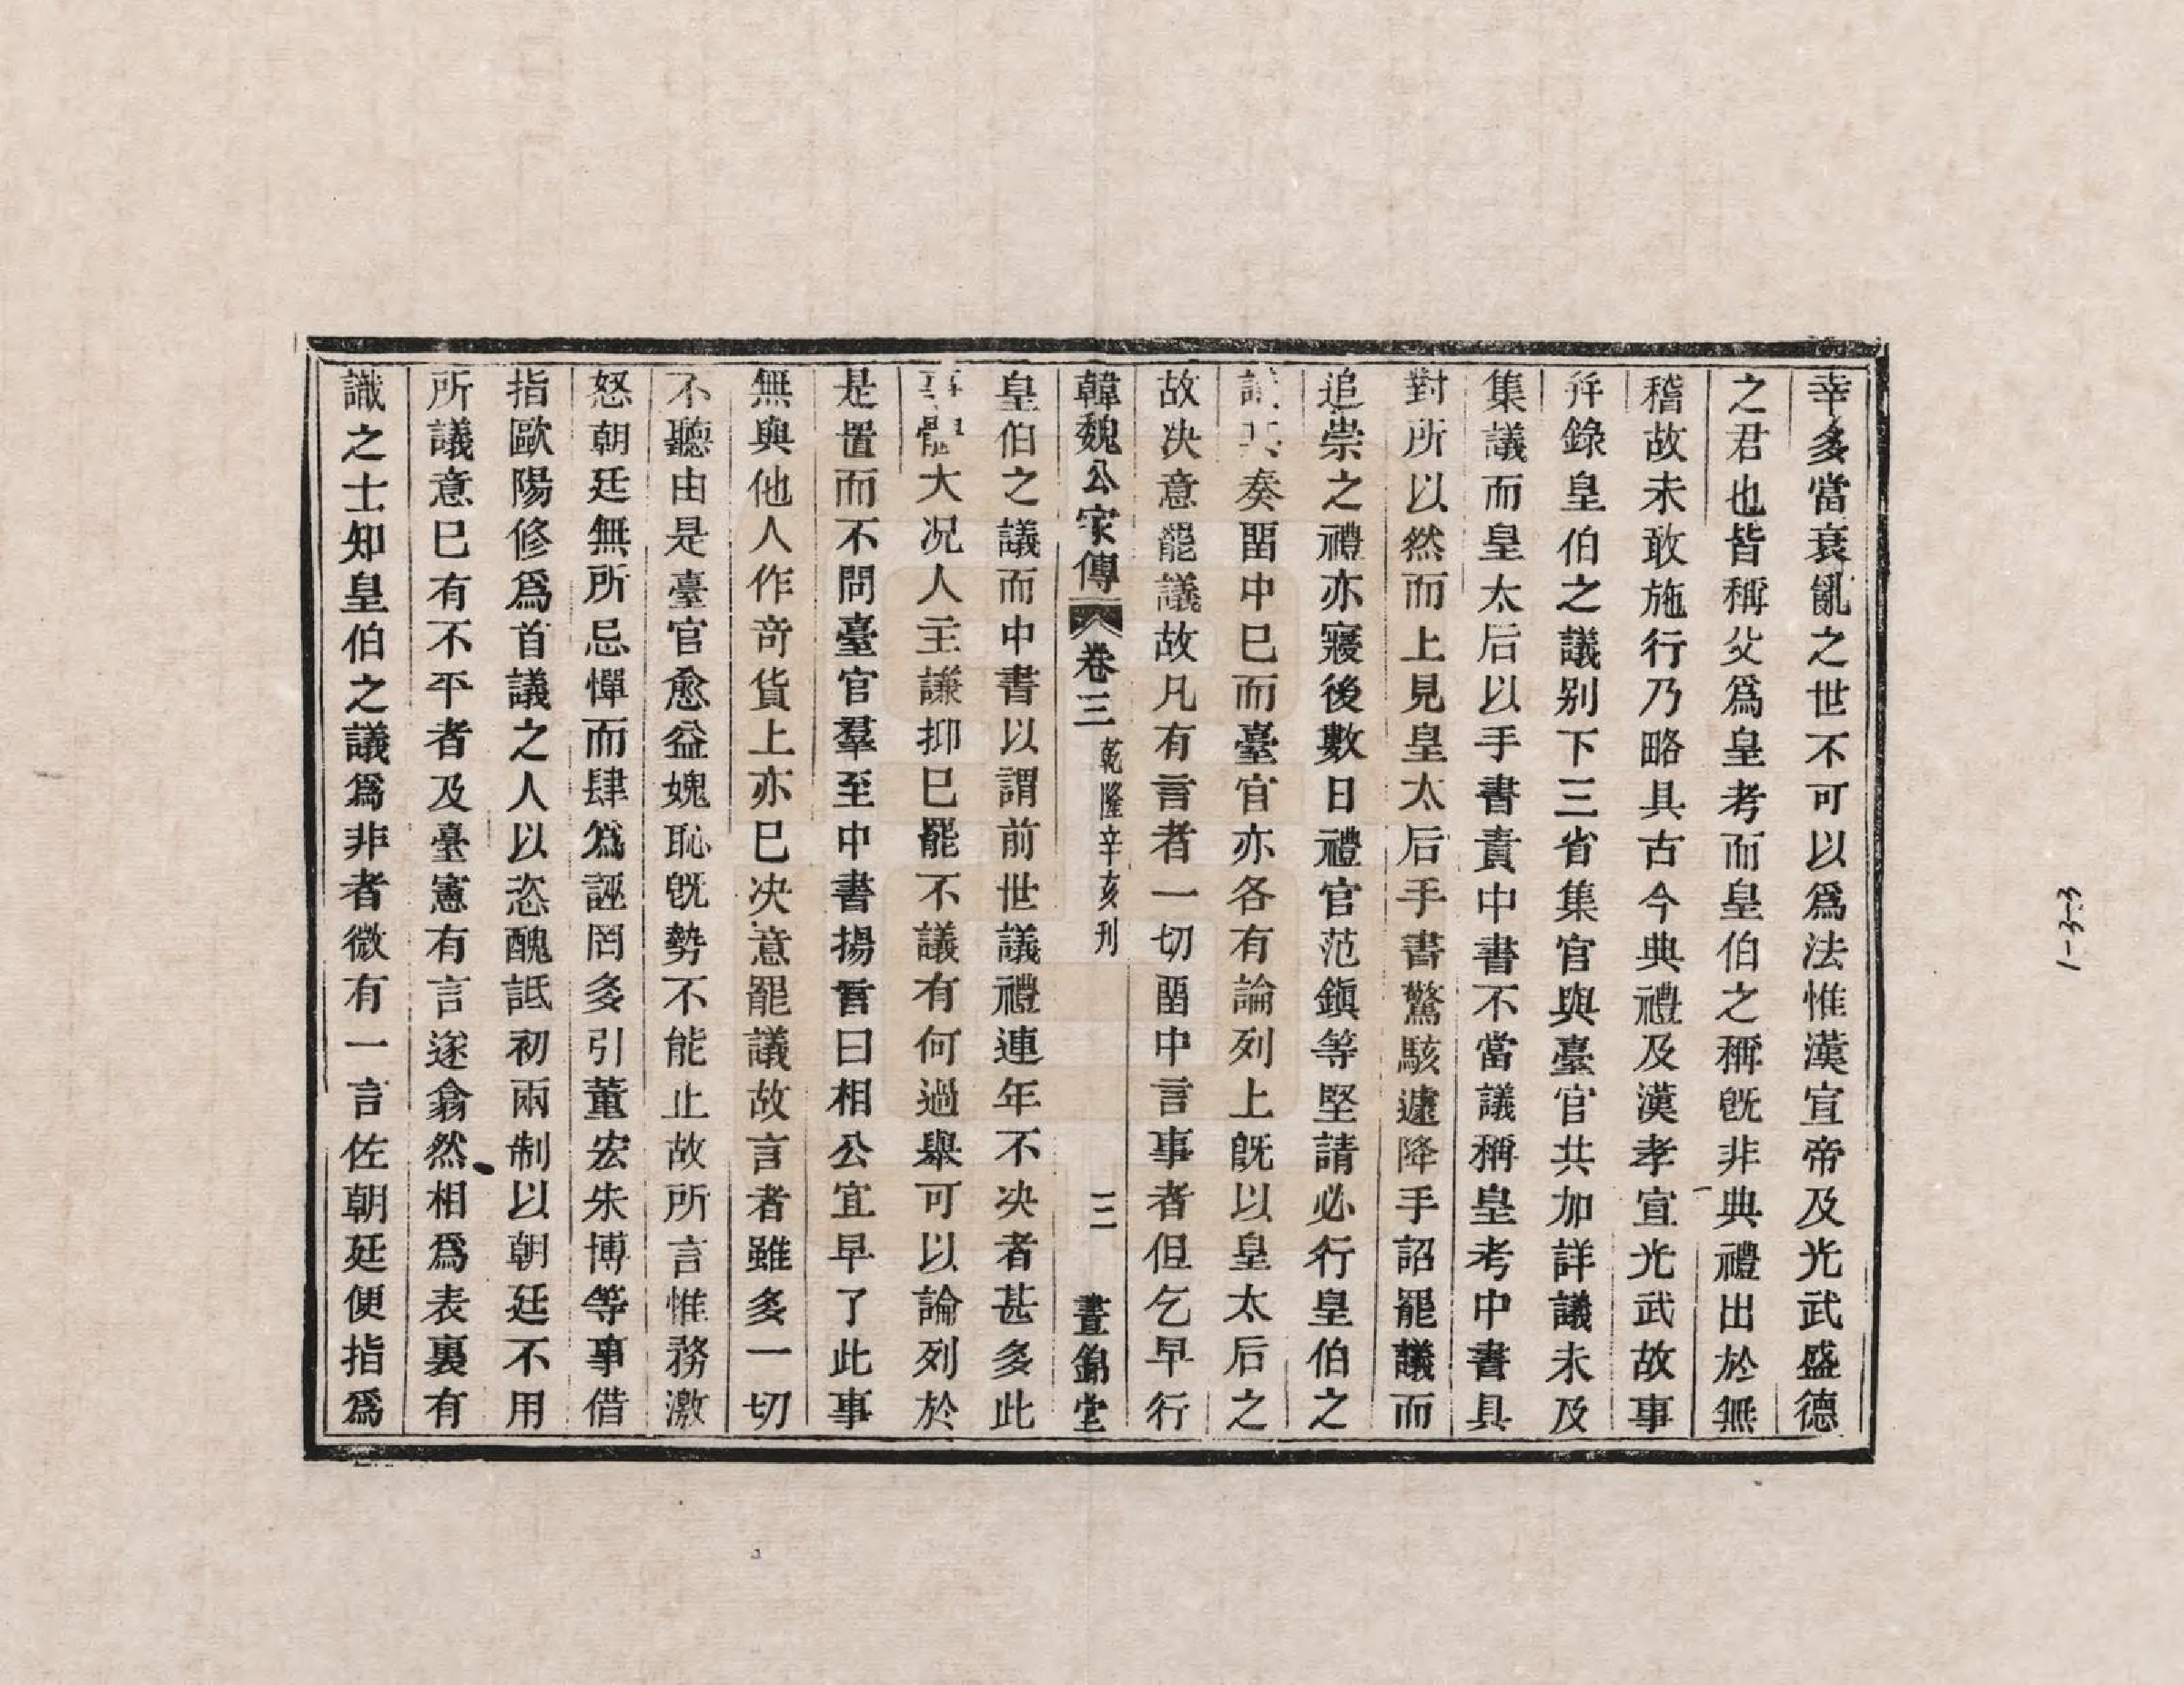 幸多當衰亂之世不可以爲法惟漢宣帝及光武盛德
之君也皆稱父爲皇考而皇伯之稱旣非典禮出於無
稽故未敢施行乃略具古今典禮及漢孝宣光武故事
并錄皇伯之議别下三省集官與臺官共加詳議未及
集議而皇太后以手書責中書不當議稱皇考中書具
對所以然而上見皇太后手書驚駭遽降手詔罷議而
追崇之禮亦寢後數日禮官范鎭等堅請必行皇伯之
議其奏畱中巳而臺官亦各有論列上旣以皇太后之
故决意罷議故凡有言者一切畱中言事者但乞早行
韓魏公家傳 卷三 乾隆辛亥刊 三 晝錦堂
皇伯之議而中書以謂前世議禮連年不决者甚多此
事體大况人主謙抑巳罷不議有何過舉可以論列於
是置而不問臺官羣至中書揚言曰相公宜早了此事
無與他人作奇貨上亦巳决意罷議故言者雖多一切
不聽由是臺官愈益媿恥旣勢不能止故所言惟務激
怒朝廷無所忌憚而肆爲誣罔多引董宏朱博等事借
指歐陽修爲首議之人以恣醜詆初兩制以朝廷不用
所議意巳有不平者及臺憲有言遂翕然相爲表裏有
識之士知皇伯之議爲非者微有一言佐朝廷便指爲
1-3-3